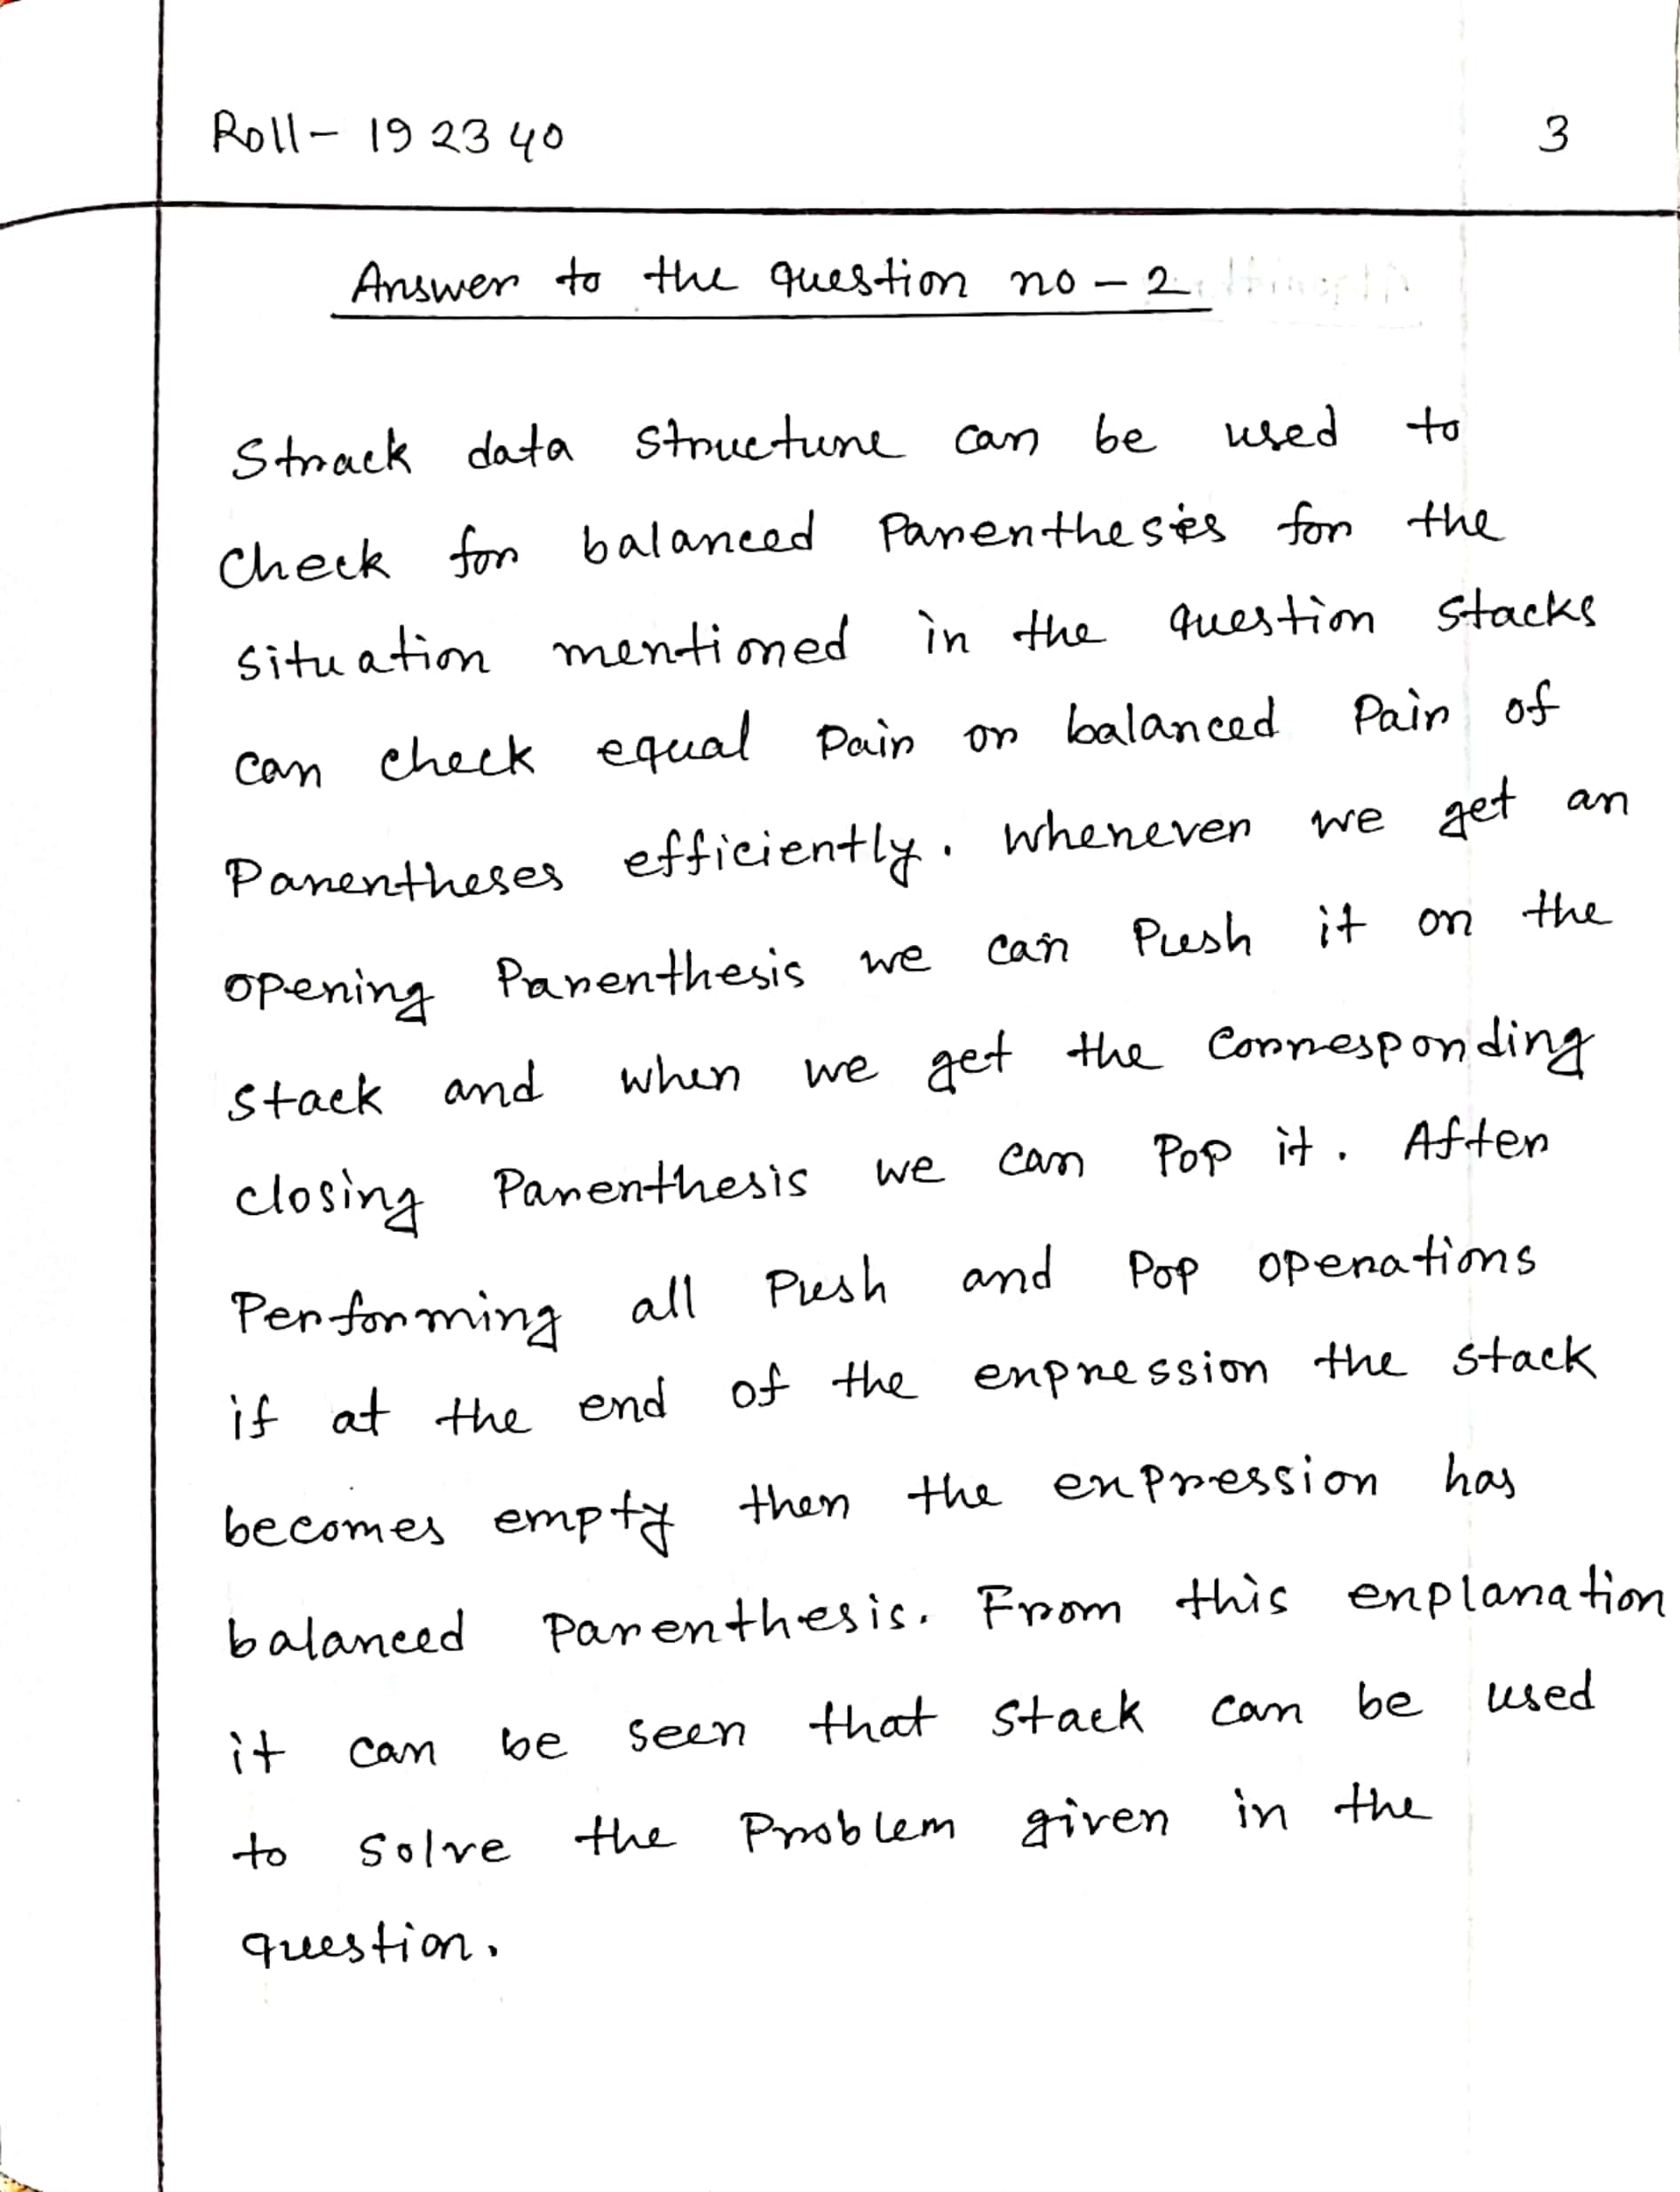 Roll- 192340
3
Answer to the question no - 2
Strack data structure can be used to
check for balanced Parentheses for the
situation mentioned in the question stacks
can check equal pair or balanced pair of
Parentheses efficiently. Whenever we get an
opening Parenthesis we can Push it on the
stack and when we get the corresponding
closing Parenthesis we can Pop it. After
Performing all Push and Pop operations
if at the end of the expression the stack
becomes empty then the expression has
balanced parenthesis. From this explanation
it can be seen that stack can be used
to solve the Problem given in the
question.